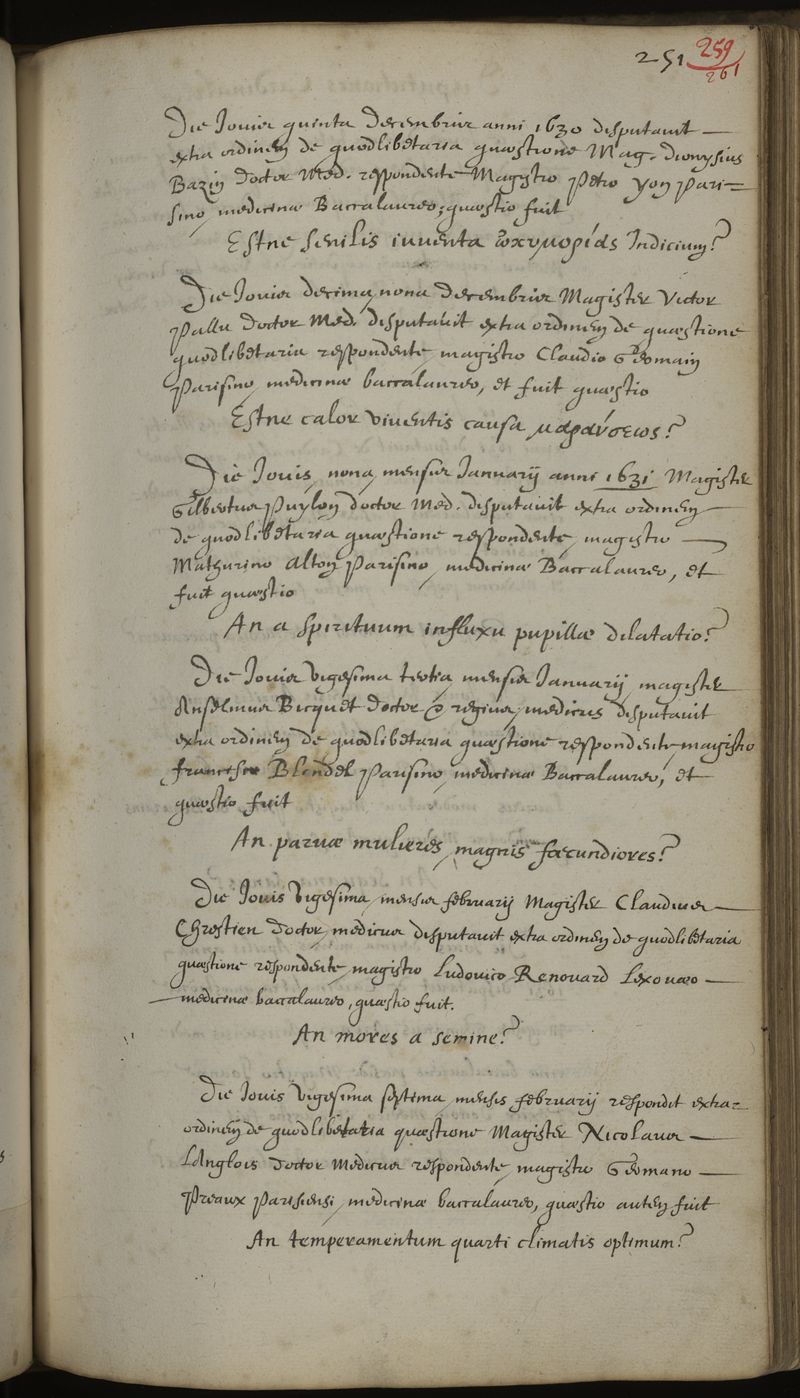 251 259
261
Die Jovis quinta Decembris anni 1630 disputavit —
extra ordinem de quodlibetaria quæstione Mag. Dionysius
Bazin Doctor Med. respondente Magistro Petro Yon Pari=
sino, medicinæ Baccalaureo; quæstio fuit
Estne senilis iuventa ὠκυμορίας Indicium?
Die Jovis decima nona Decembris Magister Victor
Pallu Doctor Med. disputavit extra ordinem de quæstione
quodlibetaria respondente magistro Claudio Germain
Parisino, medicinæ baccalaureo, et fuit quæstio
Estne calor viventis causa μαράνσεως?
Die Jovis nona mensis Januarij anni 1631 Magister
Gilbertus Puylon Doctor Med. disputavit extra ordinem —
de quodlibetaria quæstione respondente magistro —
Mathurino Alton Parisino, medicinæ Baccalaureo, et
fuit quæstio
An a spirituum influxu pupillæ dilatatio?
Die Jovis vigesima tertia mensis Januarij magister
Anselmus Bicquet Doctor & regius medicus disputavit
extra ordinem de quodlibetaria quæstione respondente magistro
francisco Blondel Parisino, medicinæ Baccalaureo, et
quæstio fuit
An parvæ mulieres, magnis fœcundiores?
Die Jovis Vigesima mensis februarij Magister Claudius —
Chrestien Doctor medicus disputavit extra ordinem de quodlibetaria
quæstione respondente magistro Ludovico Renouard Lexovæo —
— medicinæ baccalaureo, quæstio fuit.
An mores a semine?
Die Jovis Vigesima septima mensis februarij respondit extra=
ordinem de quodlibetaria quæstione Magister Nicolaus —
Langlois Doctor Medicus respondente magistro Germano —
Preaux Parisiensi, medicinæ baccalaureo, quæstio autem fuit
An temperamentum quarti climatis optimum?